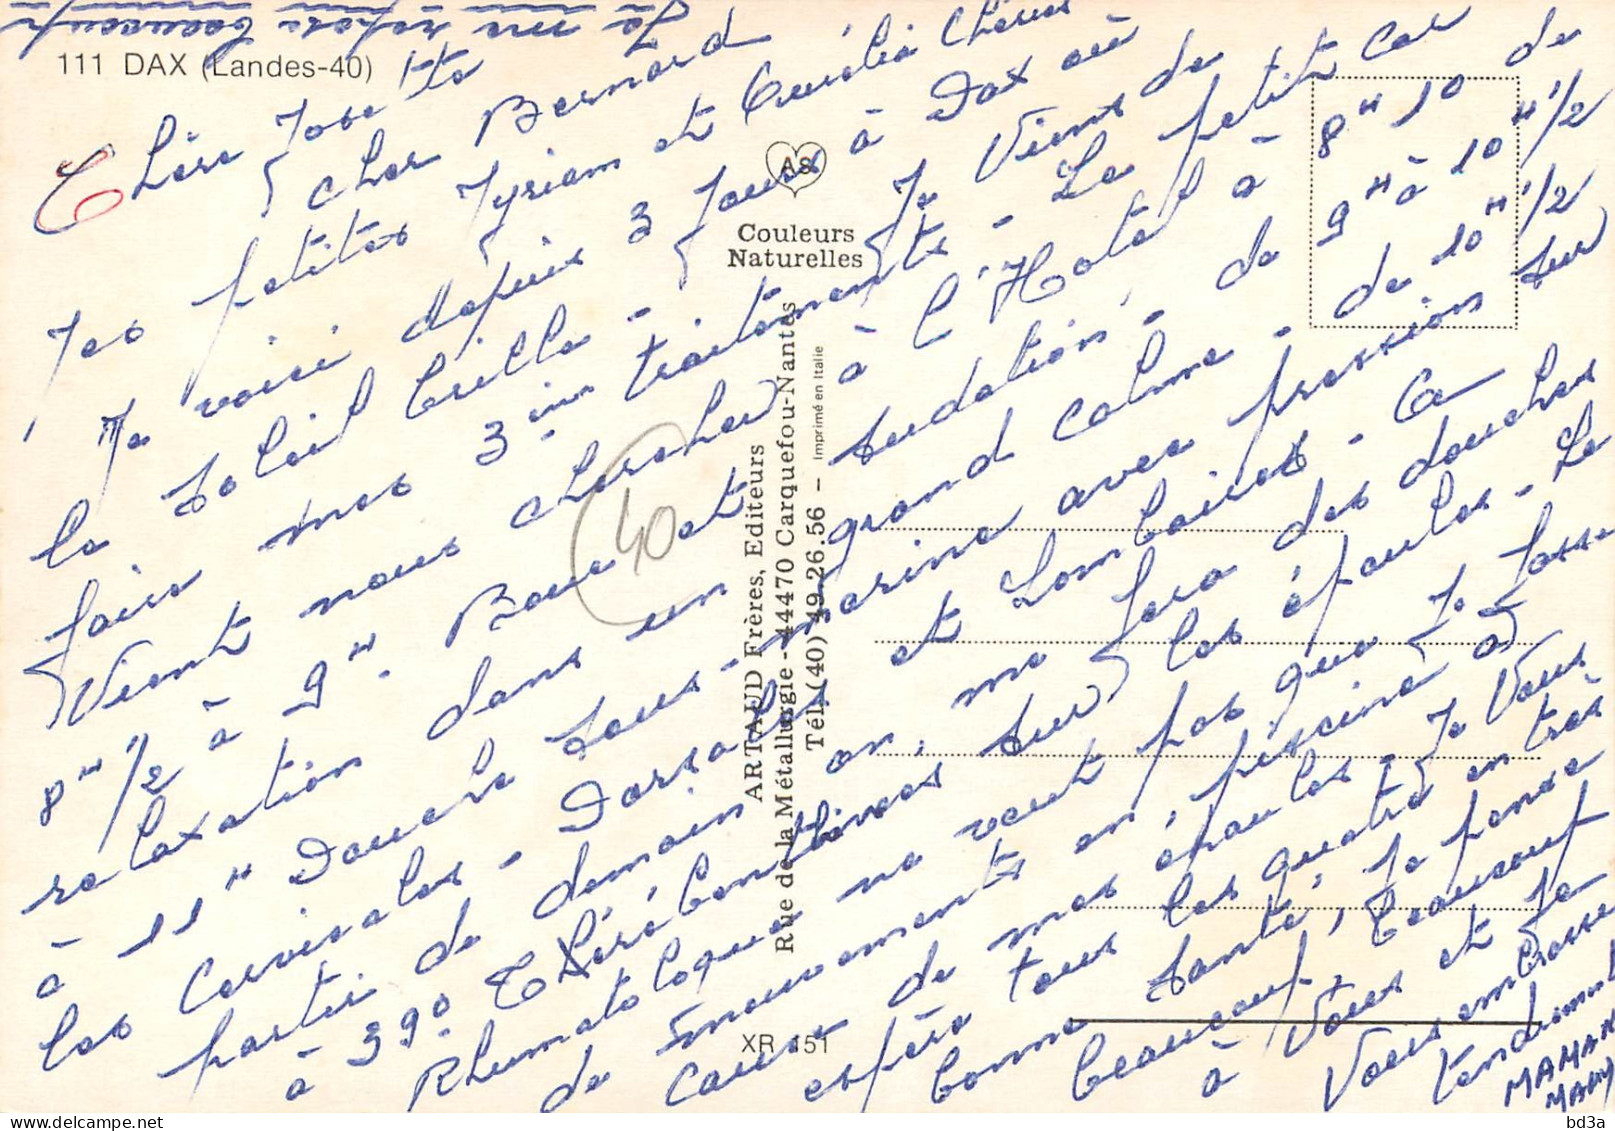 111 DAX (Landes-40)
Chère Josette
cher Bernard
Mes petites Myriam et Aurélia Chéries
Je voici depuis 3 Jours à Dax où
le Soleil brille - Je Viens de
faire mes 3 in traitements - Le petit Car
Vient nous chercher à l'Hotel à 8H10 de
8H 1/2 à 9H. Boue et sudation, de 9H à 10H1/2
relaxation dans un grand calme - de 10H1/2
à 11H Douche sous-marine avec pression sur
les Cervicales - Dorsales et Lombaires - à
partir de demain on me fera des douches
à 39° Thérébentinées sur les épaules - Le
Rhumatologue ne veut pas que je fasse
de mouvements en piscine à
cause de mes épaules - Je Vous
espère tous les quatre en très
bonne santé, Je pense
beaucoup, beaucoup
à Vous et Je
Vous embrasse
tendrement
MAMAN
MAMY
Je me repose beaucoup
AS
Couleurs
Naturelles
ARTAUD Frères, Editeurs
Rue de la Métallurgie - 44470 Carquefou-Nantes
Tél. (40) 49.26.56 - Imprimé en Italie
40
XR 151
delcampe.net
bd3a